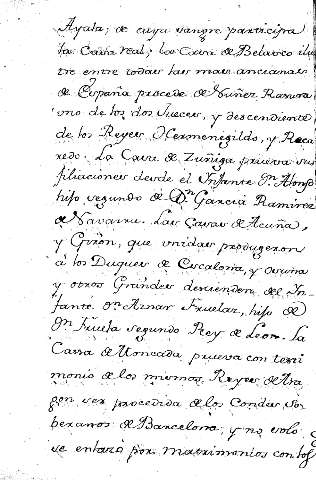 Ayala; de cuya sangre participa
la Casa real; la Casa de Belasco ilus
tre entre todas las mas ancianas
de España procede de Nuñez Rasura
uno de los dos Jueces, y descendiente
de los Reyes Hermenegildo, y Reca
redo. La Casa de Zúñiga prueva sus
filiaciones desde el Infante Dn. Alonso
hijo segundo de Dn. Garcia Ramirez
de Navarra. Las Casas de Acuña,
y Giron, que unidas produgeron
à los Duques de Escalona, y Osuna
y otros Grandes descienden del In-
fante Dn. Aznar Fruelaz, hijo de
Dn. Fruela segundo Rey de Leon. La
Casa de Moncada prueva con testi
monio de los mismos Reyes de Ara
gon ser procedida de los Condes So
beranos de Barcelona, y no solo
se enlazó por matrimonios con los